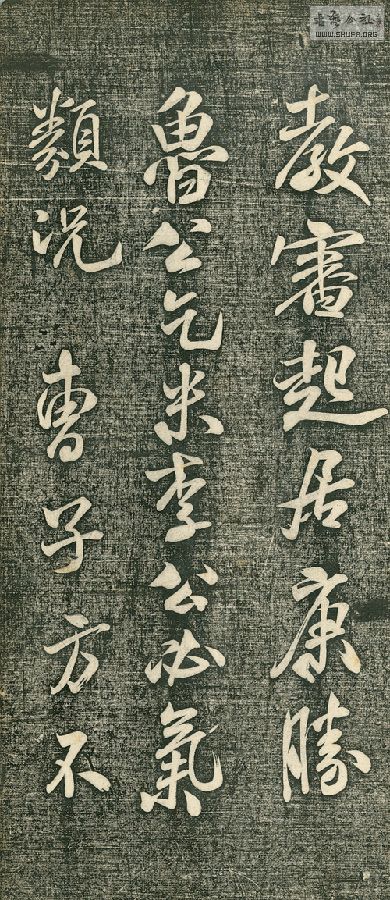 教審起居康勝
魯公乞米李公必氣
類況 曹子方不
書法公社
WWW.SHUFA.ORG